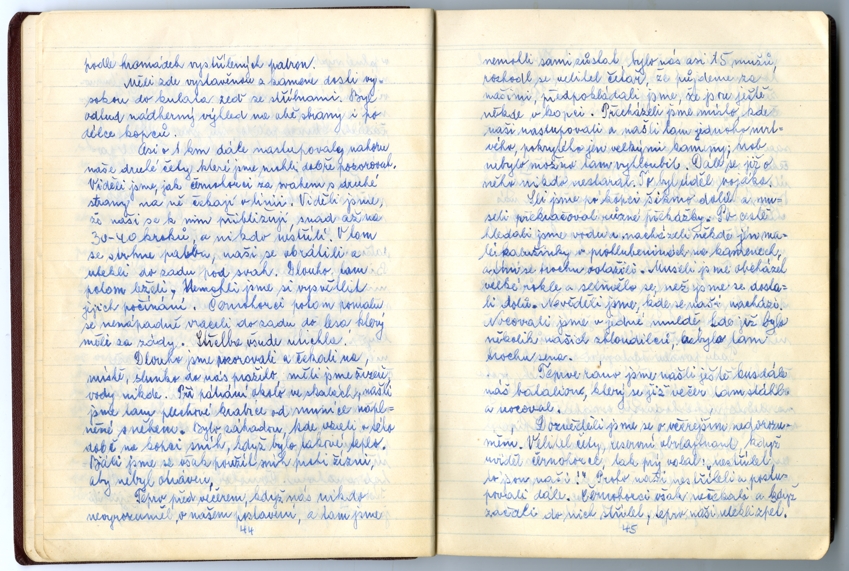 podle hromádek vystřílených patron.
Měli zde vystavěnou z kamene dosti vy-
sokou do kulata zeď se střílnami. Byl
odtud nádherný výhled na obě strany i po
délce kopců.
Asi v 1 km dále nastupovaly nahoru
naše druhé čety které jsme mohli dobře pozorovat.
Viděli jsme, jak černohorci za svahem s druhé
strany na ně čekají v linii. Viděli jsme,
že naši se k nim přibližují, snad až na
30-40 kroků, a nikdo nestřílí. V tom
se strhne palba, naši se obrátili a
utekli do zadu pod svah. Dlouho tam
potom leželi. Nemohli jsme si vysvětlit
jejich počínání. Černohorci potom pomalu
se nenápadně vraceli do zadu do lesa který
měli za zády. Střelba všude utichla.
Dlouho jsme pozorovali a čekali na
místě, slunko do nás pražilo, měli jsme žízeň,
vody nikde. Při pátrání okolo ve skalách, našli
jsme tam plechové krabice od munice napl-
něné sněhem. Bylo záhadou, kde vzali v této
době na kopci sníh, když bylo takové teplo.
Báli jsme se však použít sníh proti žízni,
aby nebyl otráven.
Tepr před večerem, když nás nikdo
nevyrozuměl, o našem postavení, a tam jsme
44
nemohli sami zůstat, bylo nás asi 15 mužů,
rozhodl se velitel četař, že půjdeme za
našimi, předpokládali jsme, že jsou ještě
někde v kopci. Přecházeli jsme místo, kde
naši nastupovali a našli tam jednoho mrt-
vého, pokrytého jen velkými kameny, hrob
nebylo možno tam vyhloubit. Dále se již o
něho nikdo nestaral. To byl úděl vojáka.
Šli jsme po kopci šikmo dolů a mu-
seli překračovat různé překážky. Po cestě
hledali jsme vodu a nacházeli někde jen ma-
lé kalužinky v prohlubeninách na kamenech,
a tím se trochu osvěžili. Museli jsme obcházet
velké rokle a setmělo se, než jsme se dosta-
li dolů. Nevěděli jsme, kde se naši nachází.
Nocovali jsme v jedné muldě, kde již bylo
několik našich zbloudilců, a bylo tam
trochu sena.
Teprve ráno jsme našli ještě kus dále
náš batalion, který se již večer tam stáhl
a nocoval.
Dozvěděli jsme se o včerejším nedorozu-
mění. Velitel čety, rezervní obrlajtnant, když
uviděl černohorce, tak prý volal: "nestřílet,
to jsou naši!" Proto naši nestříleli a postu-
povali dále. Černohorci však nečekali a když
začali do nich střílet, tepro naši utekli zpět.
45